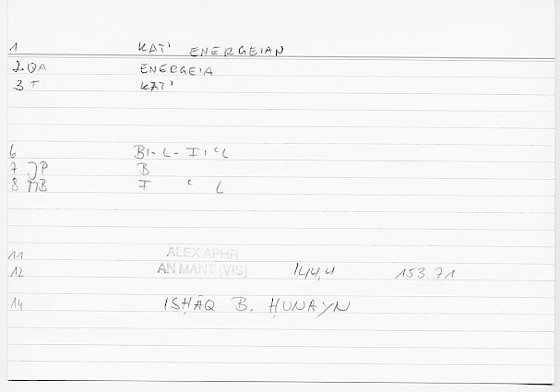 1 KAT' ENERGEIAN
2. QA ENERGEIA
3 T KAT'
6 BI-L-FI'L
7 JP B
8 MB F ' L
11 ALEX APHR
12 AN MANT [VIS] 144,4 153.71
14 ISḤĀQ B. ḤUNAYN